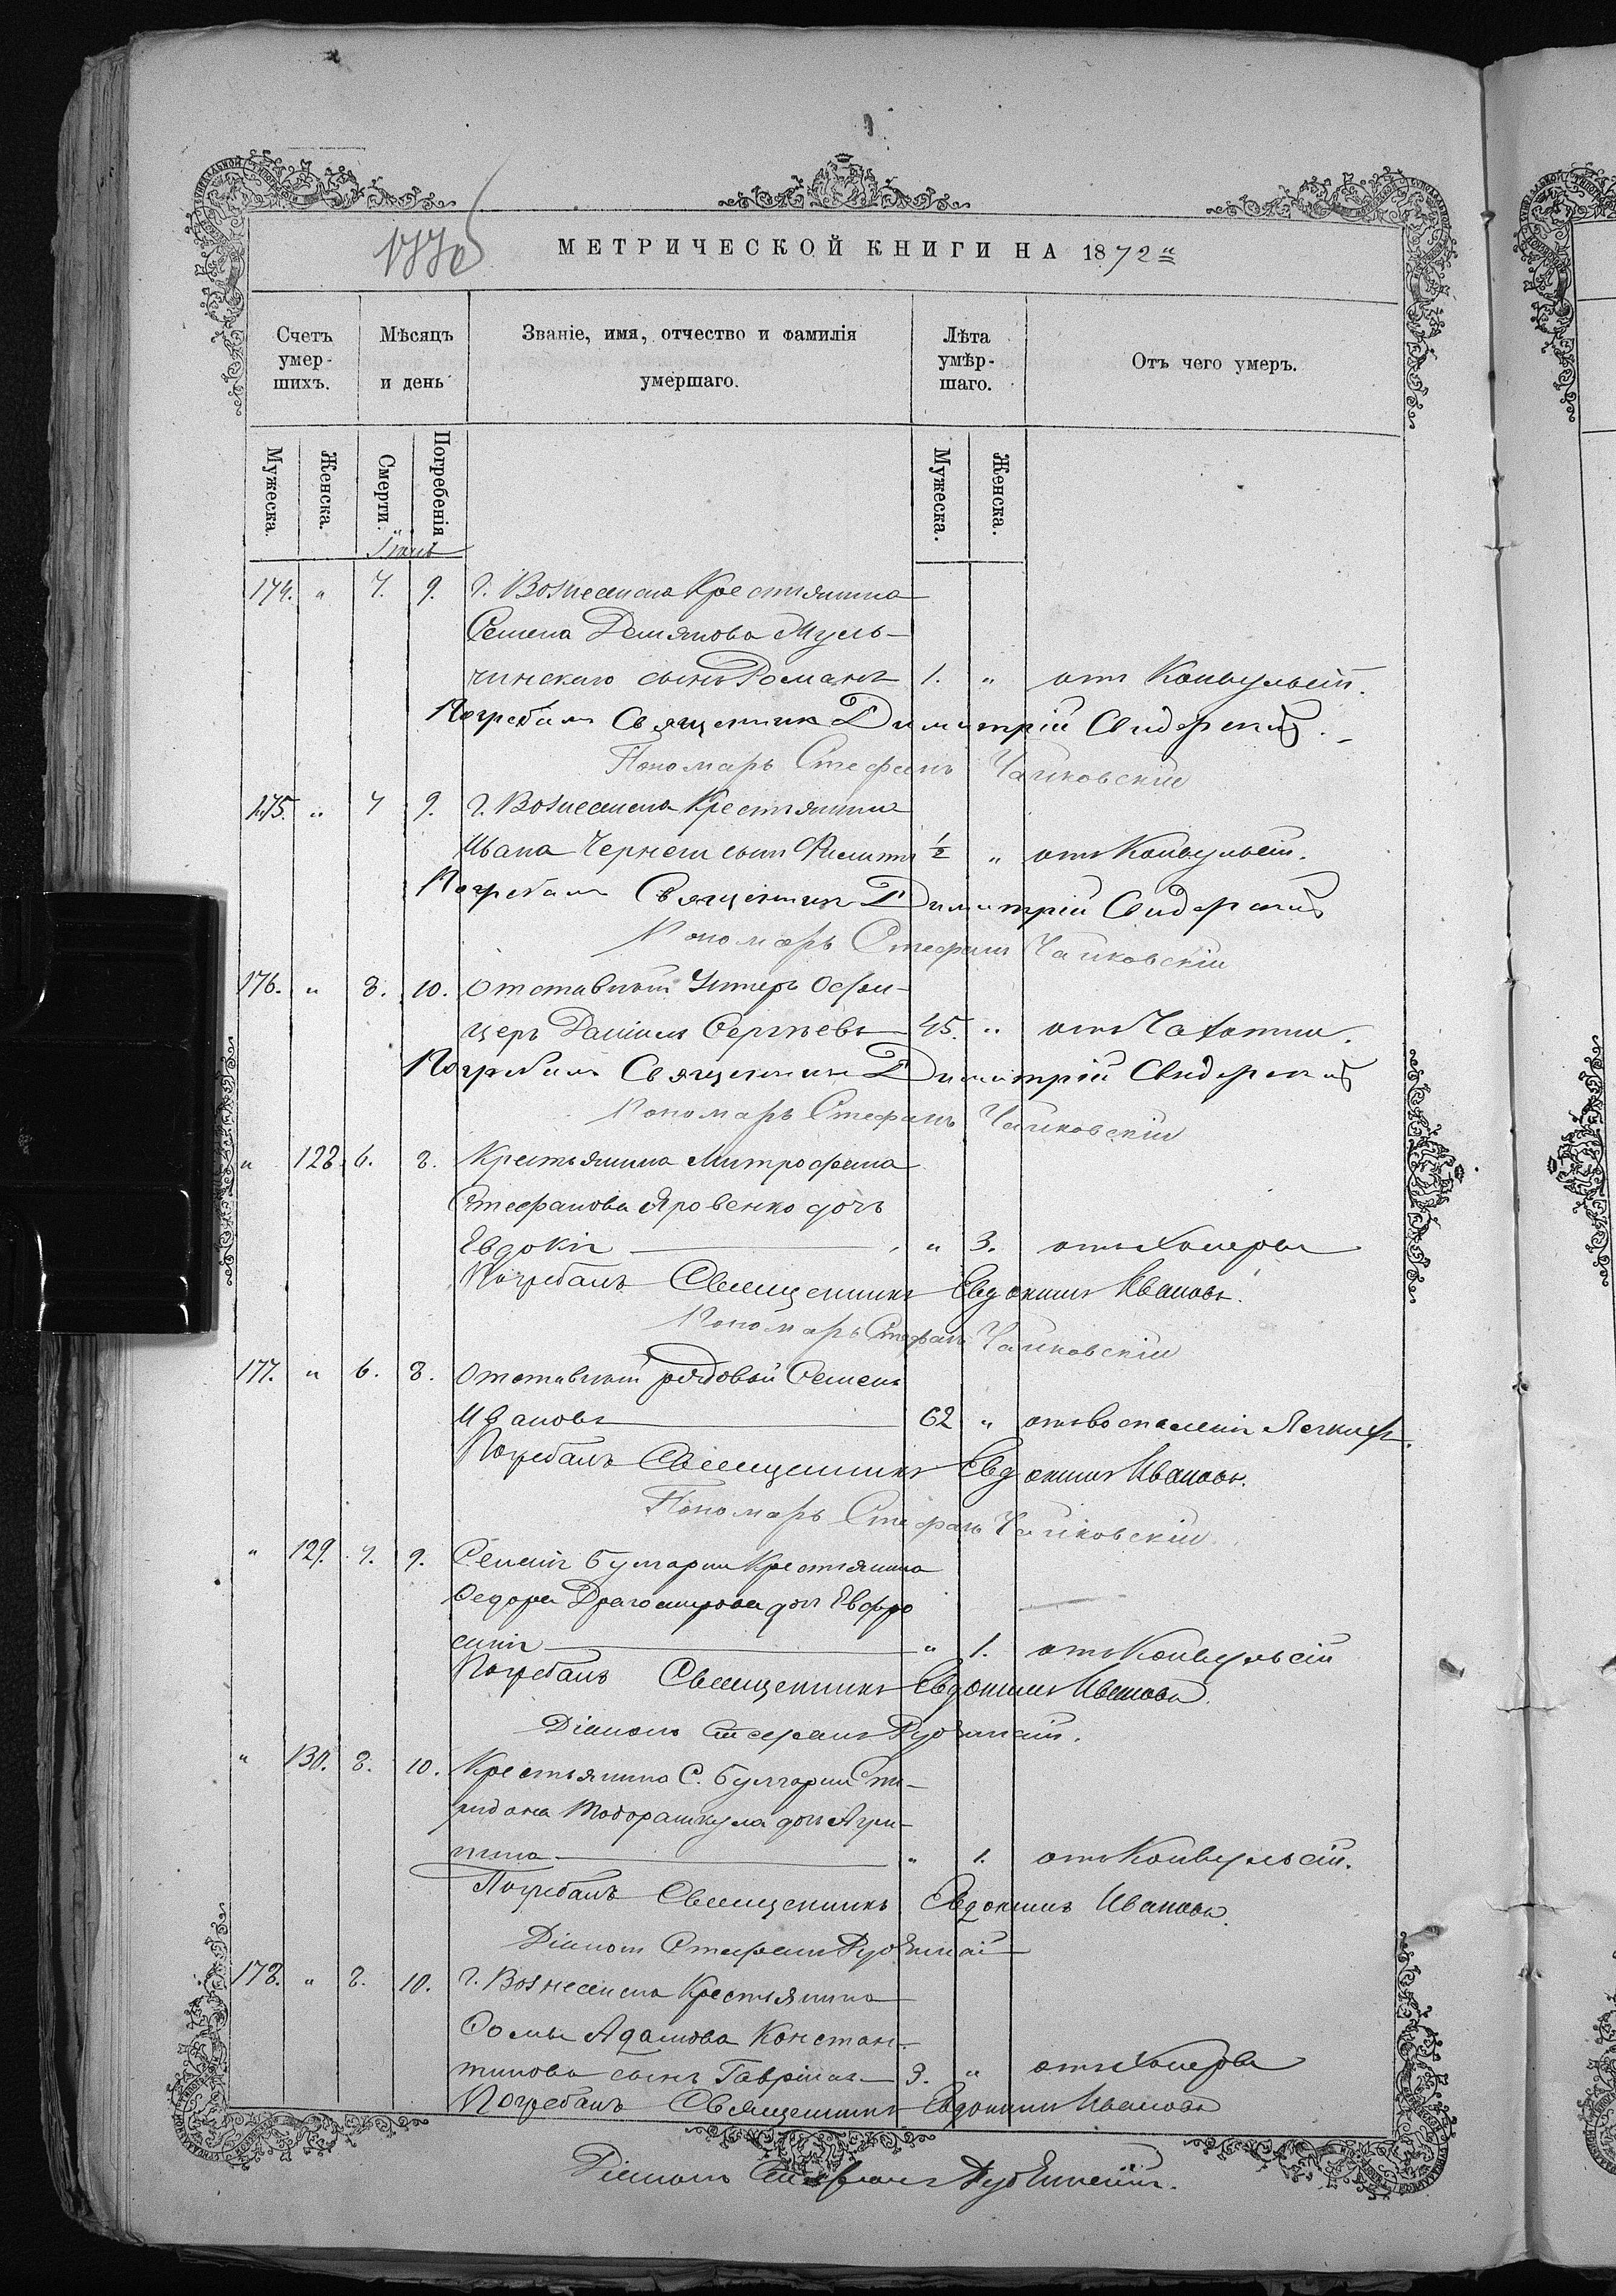 МЕТРИЧЕСКОЙ КНИГИ НА 1872
Счетъ умер-шихъ. Мѣсяцъ и день Званіе, имя, отчество и фамилія умершаго. Лѣта умѣр-шаго. Отъ чего умеръ.
Мужеска. Женска. Смерти. Погребенія Мужеска. Женска.
174. " 7. 9. г. Вознесенска Крестьянина
Семена Демянова Муль-
чинскаго сынъ Романъ 1. " отъ Конвульсій.
Погребалъ Священник Димитрій Свидерскій.
Пономарь Стефанъ Чайковскій
175. " 7 9. г. Вознесенска Крестьянина
Ивана Чернеги сынъ Филиппъ ½ " отъ Конвульсій.
Погребалъ Священник Димитрій Свидерскій
Пономарь Стефанъ Чайковскій
176. " 8. 10. Отставный Унтеръ Офи-
церъ Даніилъ Сергѣевъ 45. " отъ Чахотки.
Погребалъ Священник Димитрій Свидерскій
Пономарь Стефанъ Чайковскій
" 128. 6. 8. Крестьянина Митрофана
Стефанова Яровенко дочь
Евдокія " 3. отъ Холеры
Погребалъ Священникъ Евдокимъ Ивановъ.
Пономарь Стефанъ Чайковскій
177. " 6. 8. Отставный рядовый Семенъ
Ивановъ 62 " отъ воспаленія Легкихъ.
Погребалъ Священникъ Евдокимъ Ивановъ.
Пономарь Стефанъ Чайковскій
" 129. 7. 9. Селенія Булгарки Крестьянина
Федора дочь Евфро
синія " 1. отъ Конвульсій
Погребалъ Священникъ Евдокимъ Ивановъ.
Діаконъ Стефанъ
" 130. 8. 10. Крестьянина С. Булгарки Спи-
ридона дочь Агри-
пина " 1. отъ Конвульсій.
Погребалъ Священникъ Евдокимъ Ивановъ.
Діаконъ Стефанъ
178. " 8. 10. г. Вознесенска Крестьянина
Фомы Адамова Констан-
тинова сынъ Гавріилъ 3. " отъ Холеры
Погребалъ Священникъ Евдокимъ Ивановъ
Діаконъ Стефанъ